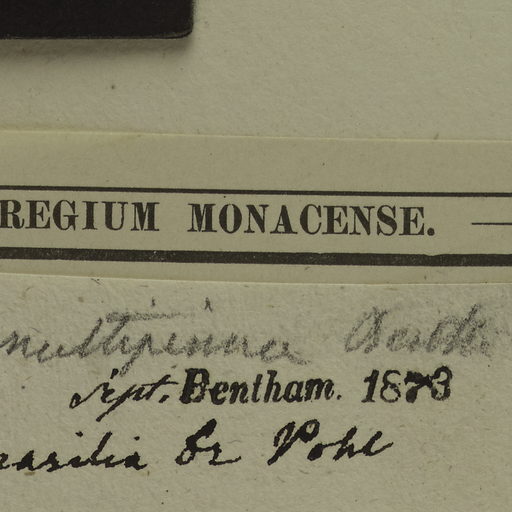 REGIUM MONACENSE.
multipinna Benth
Sept. Bentham. 1873
rasilia Dr Pohl